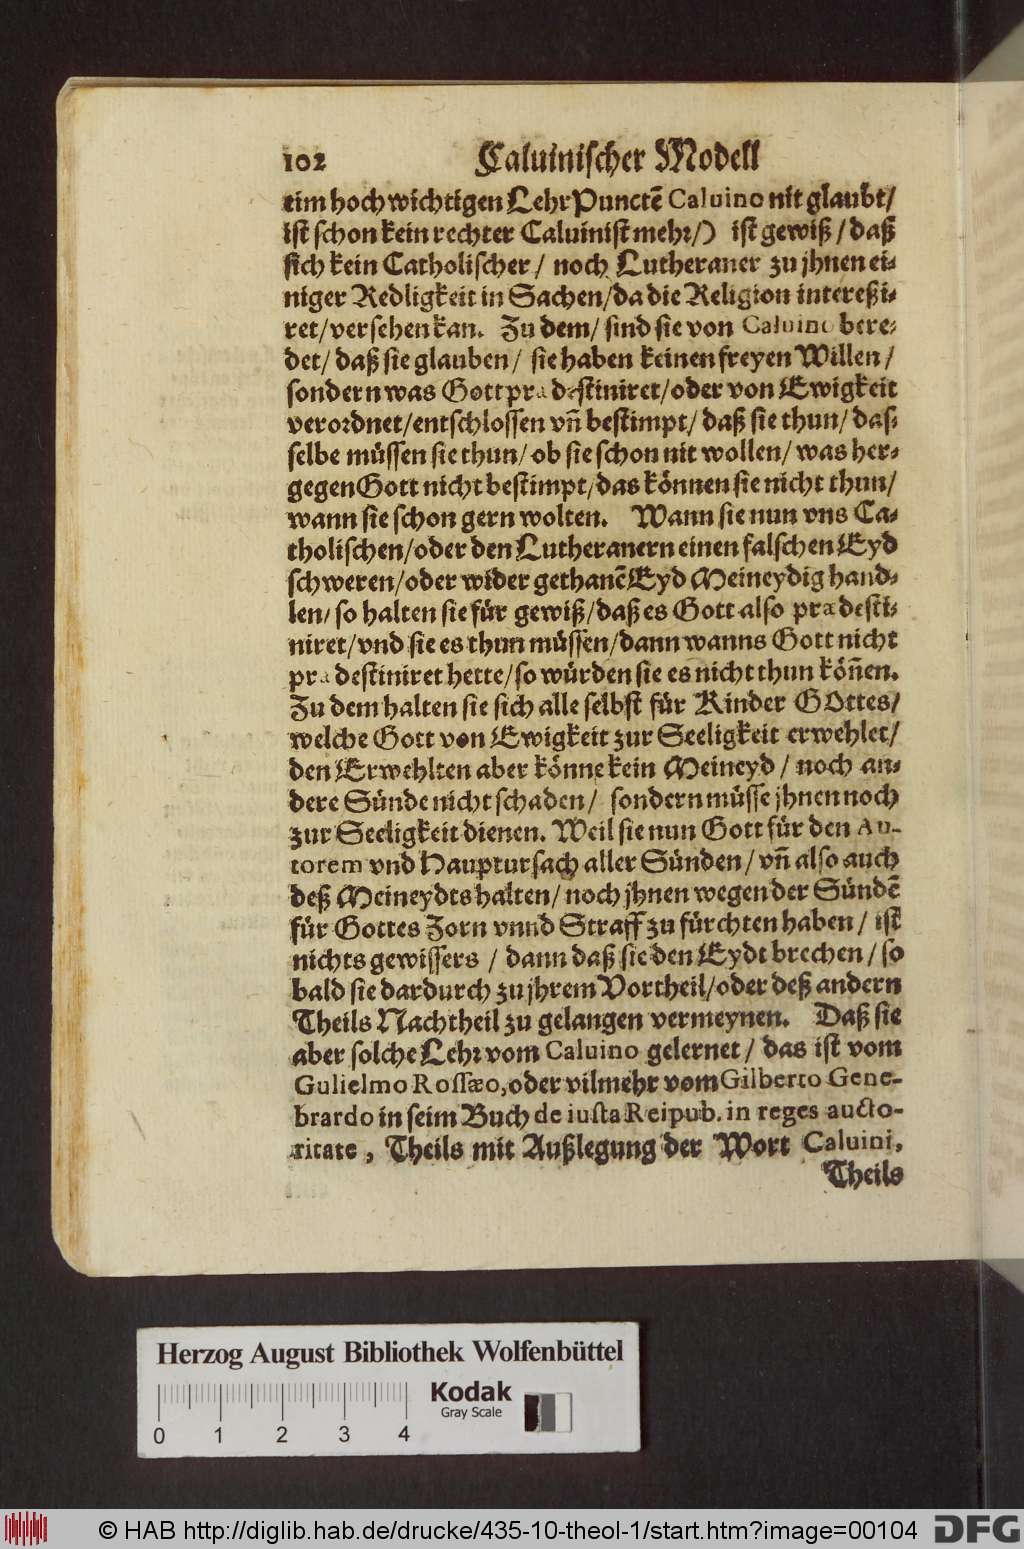 102 Caluinischer Modell
eim hochwichtigen Lehr Punctē Caluino nit glaubt/
ist schon kein rechter Caluinist mehr/) ist gewiß/ daß
sich kein Catholischer/ noch Lutheraner zu jhnen ei-
niger Redligkeit in Sachen/ da die Religion intereßi-
ret/ versehen kan. Zu dem/ sind sie von Caluino bere-
det/ daß sie glauben/ sie haben keinen freyen Willen/
sondern was Gott prædestiniret/ oder von Ewigkeit
verordnet/ entschlossen vñ bestimpt/ daß sie thun/ das-
selbe müssen sie thun/ ob sie schon nit wollen/ was her-
gegen Gott nicht bestimpt/ das können sie nicht thun/
wann sie schon gern wolten. Wann sie nun vns Ca-
tholischen/ oder den Lutheranern einen falschen Eyd
schweren/ oder wider gethanē Eyd Meineydig hand-
len/ so halten sie für gewiß/ daß es Gott also prædesti-
niret/ vnd sie es thun müssen/ dann wanns Gott nicht
prædestiniret hette/ so würden sie es nicht thun köñen.
Zu dem halten sie sich alle selbst für Kinder GOttes/
welche Gott von Ewigkeit zur Seeligkeit erwehlet/
den Erwehlten aber könne kein Meineyd/ noch an-
dere Sünde nicht schaden/ sondern müsse jhnen noch
zur Seeligkeit dienen. Weil sie nun Gott für den Au-
torem vnd Hauptursach aller Sünden/ vñ also auch
deß Meineydts halten/ noch jhnen wegen der Sündē
für Gottes Zorn vnnd Straff zu fürchten haben/ ist
nichts gewissers/ dann daß sie den Eydt brechen/ so
bald sie dardurch zu jhrem Vortheil/ oder deß andern
Theils Nachtheil zu gelangen vermeynen. Daß sie
aber solche Lehr vom Caluino gelernet/ das ist vom
Gulielmo Rossæo, oder vilmehr vom Gilberto Gene-
brardo in seim Buch de iusta Reipub. in reges aucto-
ritate, Theils mit Außlegung der Wort Caluini,
Theils
Herzog August Bibliothek Wolfenbüttel
Kodak
Gray Scale
0 1 2 3 4
© HAB http://diglib.hab.de/drucke/435-10-theol-1/start.htm?image=00104
DFG